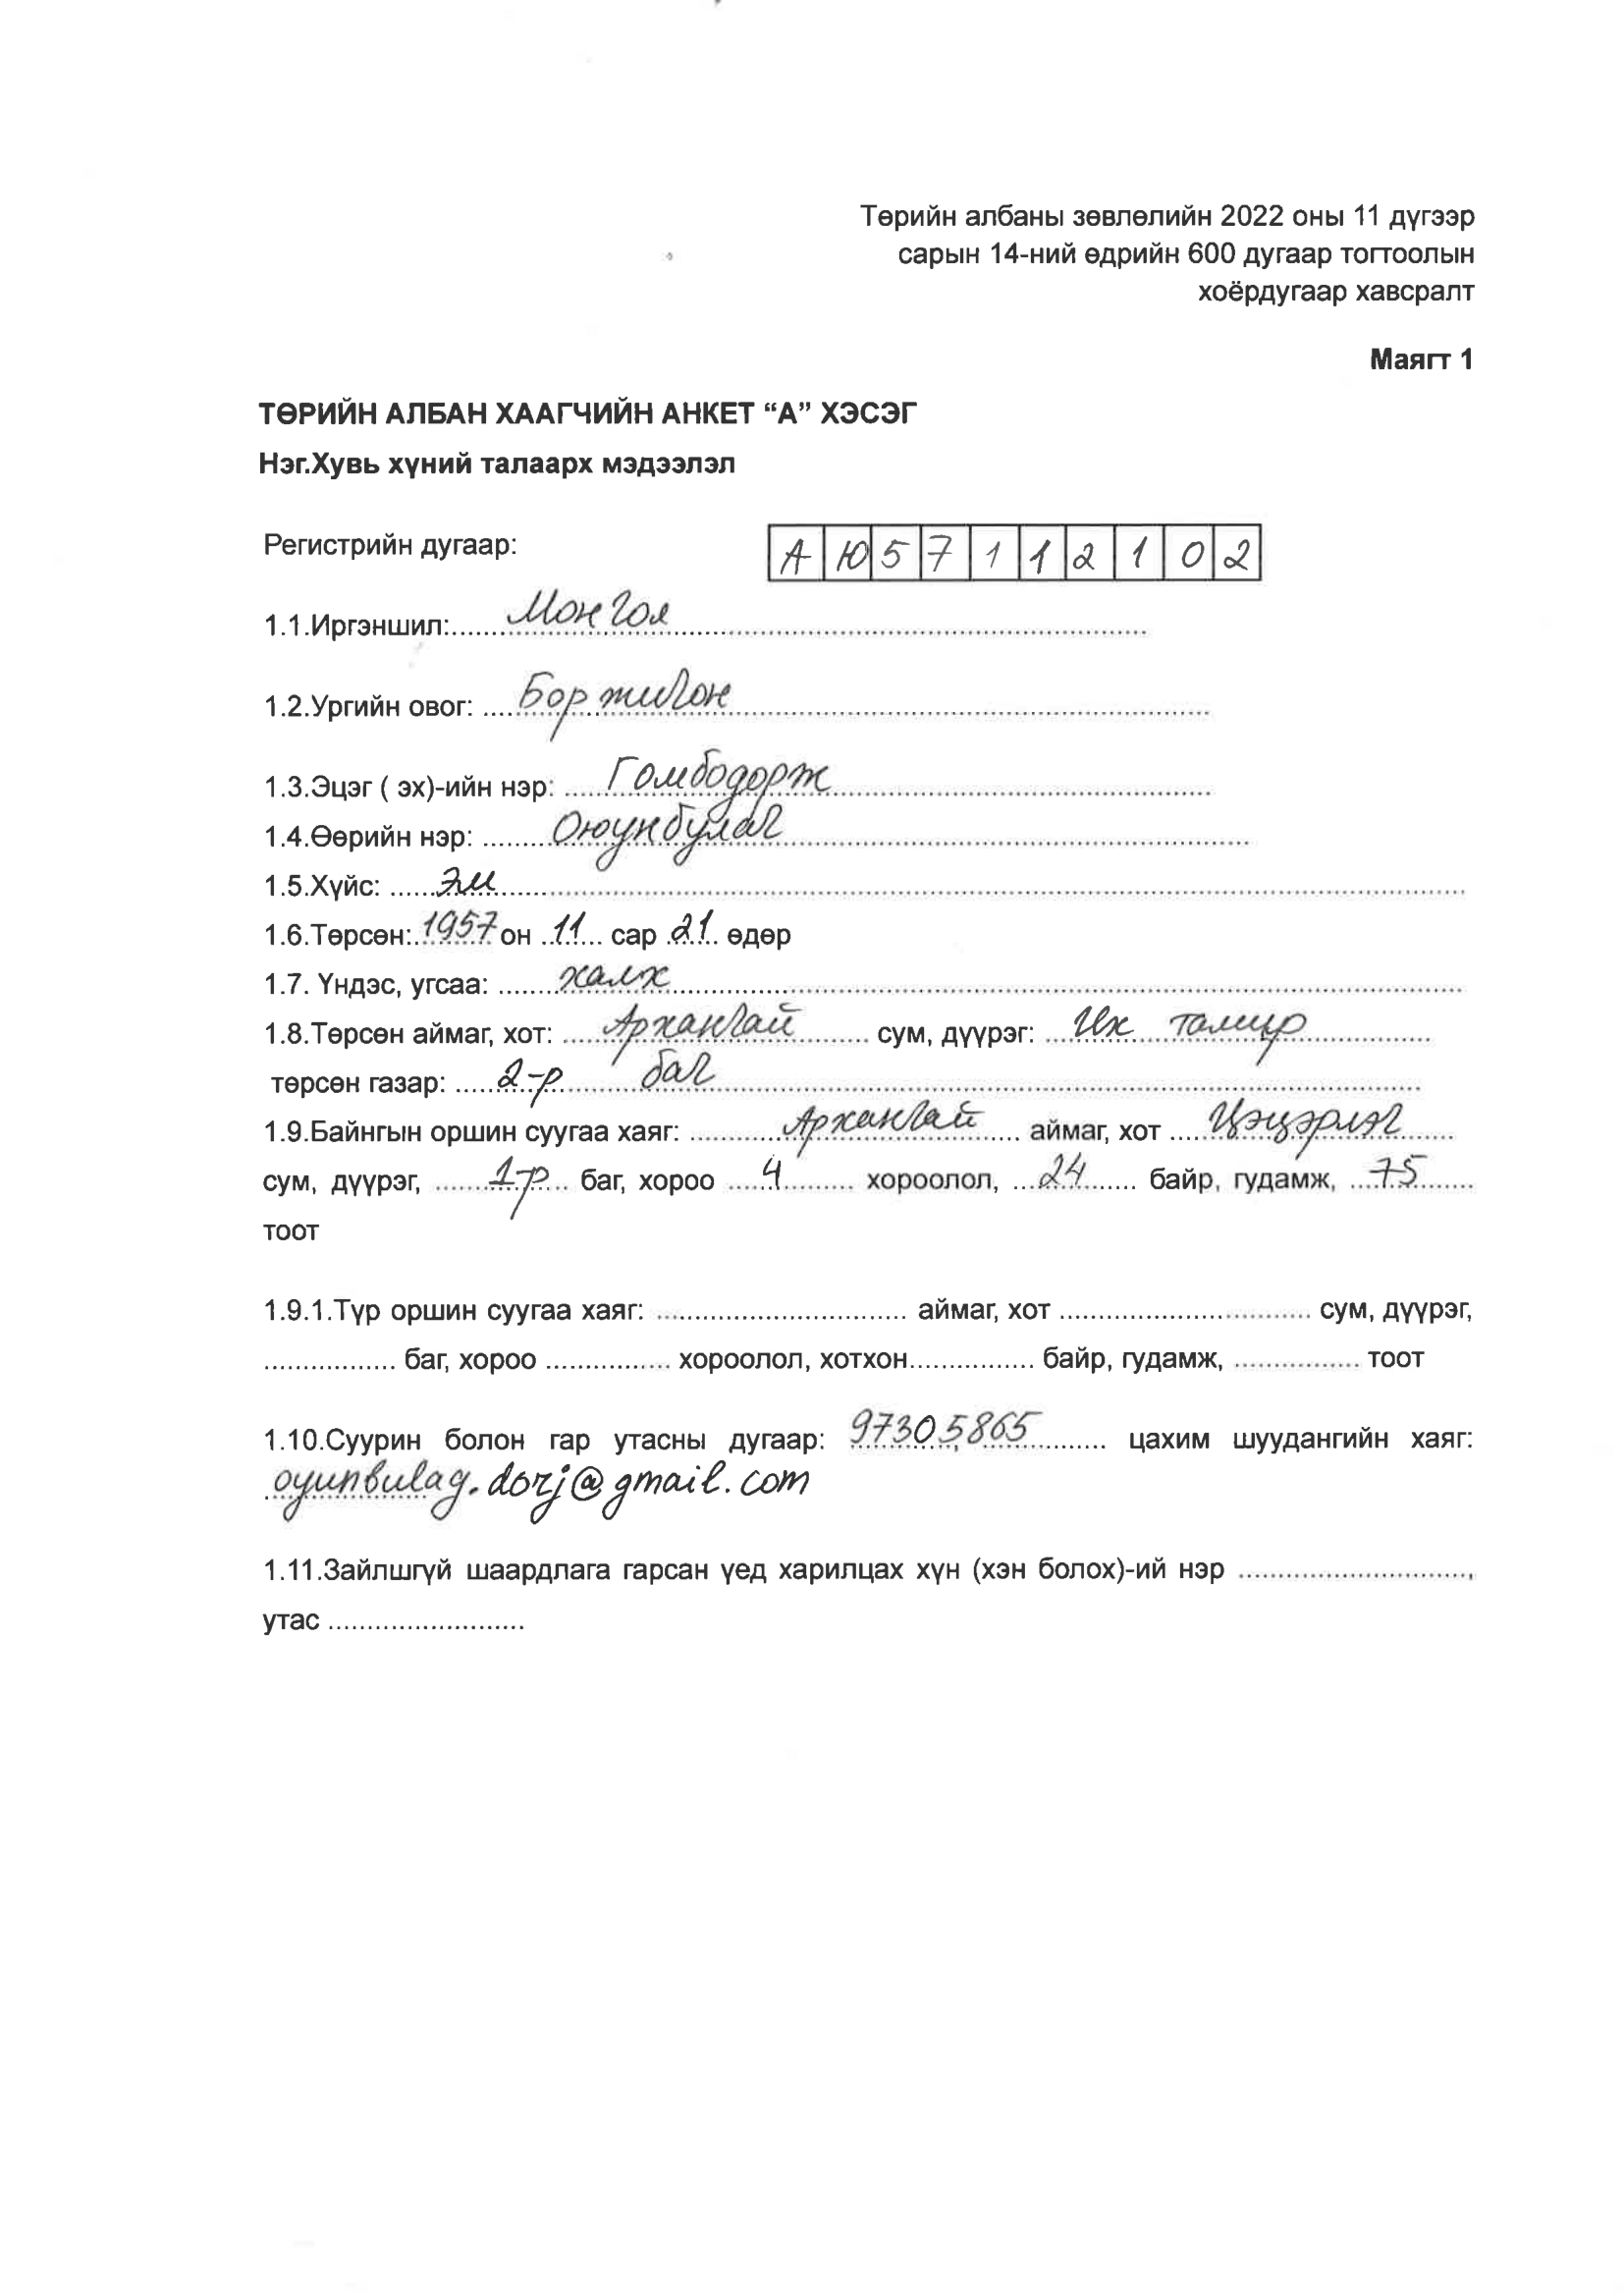 Төрийн албаны зөвлөлийн 2022 оны 11 дүгээр
сарын 14-ний өдрийн 600 дугаар тогтоолын
хоёрдугаар хавсралт
Маягт 1
ТӨРИЙН АЛБАН ХААГЧИЙН АНКЕТ “А” ХЭСЭГ
Нэг.Хувь хүний талаарх мэдээлэл
Регистрийн дугаар: А Ю 5 7 1 1 2 1 0 2
1.1.Иргэншил: Монгол
1.2.Ургийн овог: Боржигон
1.3.Эцэг ( эх)-ийн нэр: Гомбодорж
1.4.Өөрийн нэр: Оюунбулаг
1.5.Хүйс: Эм
1.6.Төрсөн: 1957 он 11 сар 21 өдөр
1.7. Үндэс, угсаа: халх
1.8.Төрсөн аймаг, хот: Архангай сум, дүүрэг: Их тамир
төрсөн газар: 2-р баг
1.9.Байнгын оршин суугаа хаяг: Архангай аймаг, хот Цэцэрлэг
сум, дүүрэг, 1-р баг, хороо 4 хороолол, 24 байр, гудамж, 75
тоот
1.9.1.Түр оршин суугаа хаяг: .......... аймаг, хот .......... сум, дүүрэг,
.......... баг, хороо .......... хороолол, хотхон.......... байр, гудамж, .......... тоот
1.10.Суурин болон гар утасны дугаар: 97305865 цахим шуудангийн хаяг:
oyunbulag.dorj@gmail.com
1.11.Зайлшгүй шаардлага гарсан үед харилцах хүн (хэн болох)-ий нэр ..........,
утас ..........